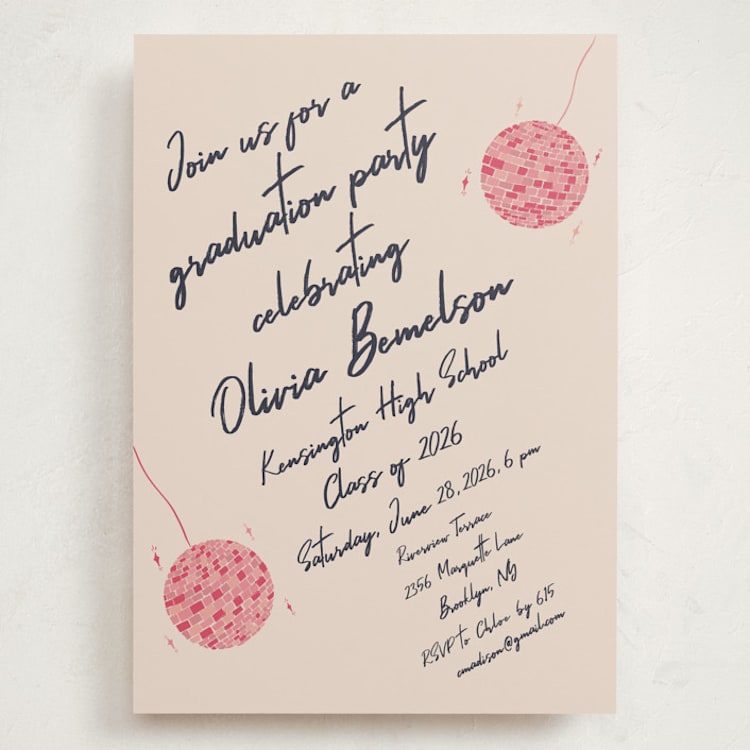 Join us for a
graduation party
celebrating
Olivia Bemelson
Kensington High School
Class of 2026
Saturday, June 28, 2026, 6 pm
Riverview Terrace
2356 Marquette Lane
Brooklyn, NY
RSVP to Chloe by 615
cmadison@gmail.com